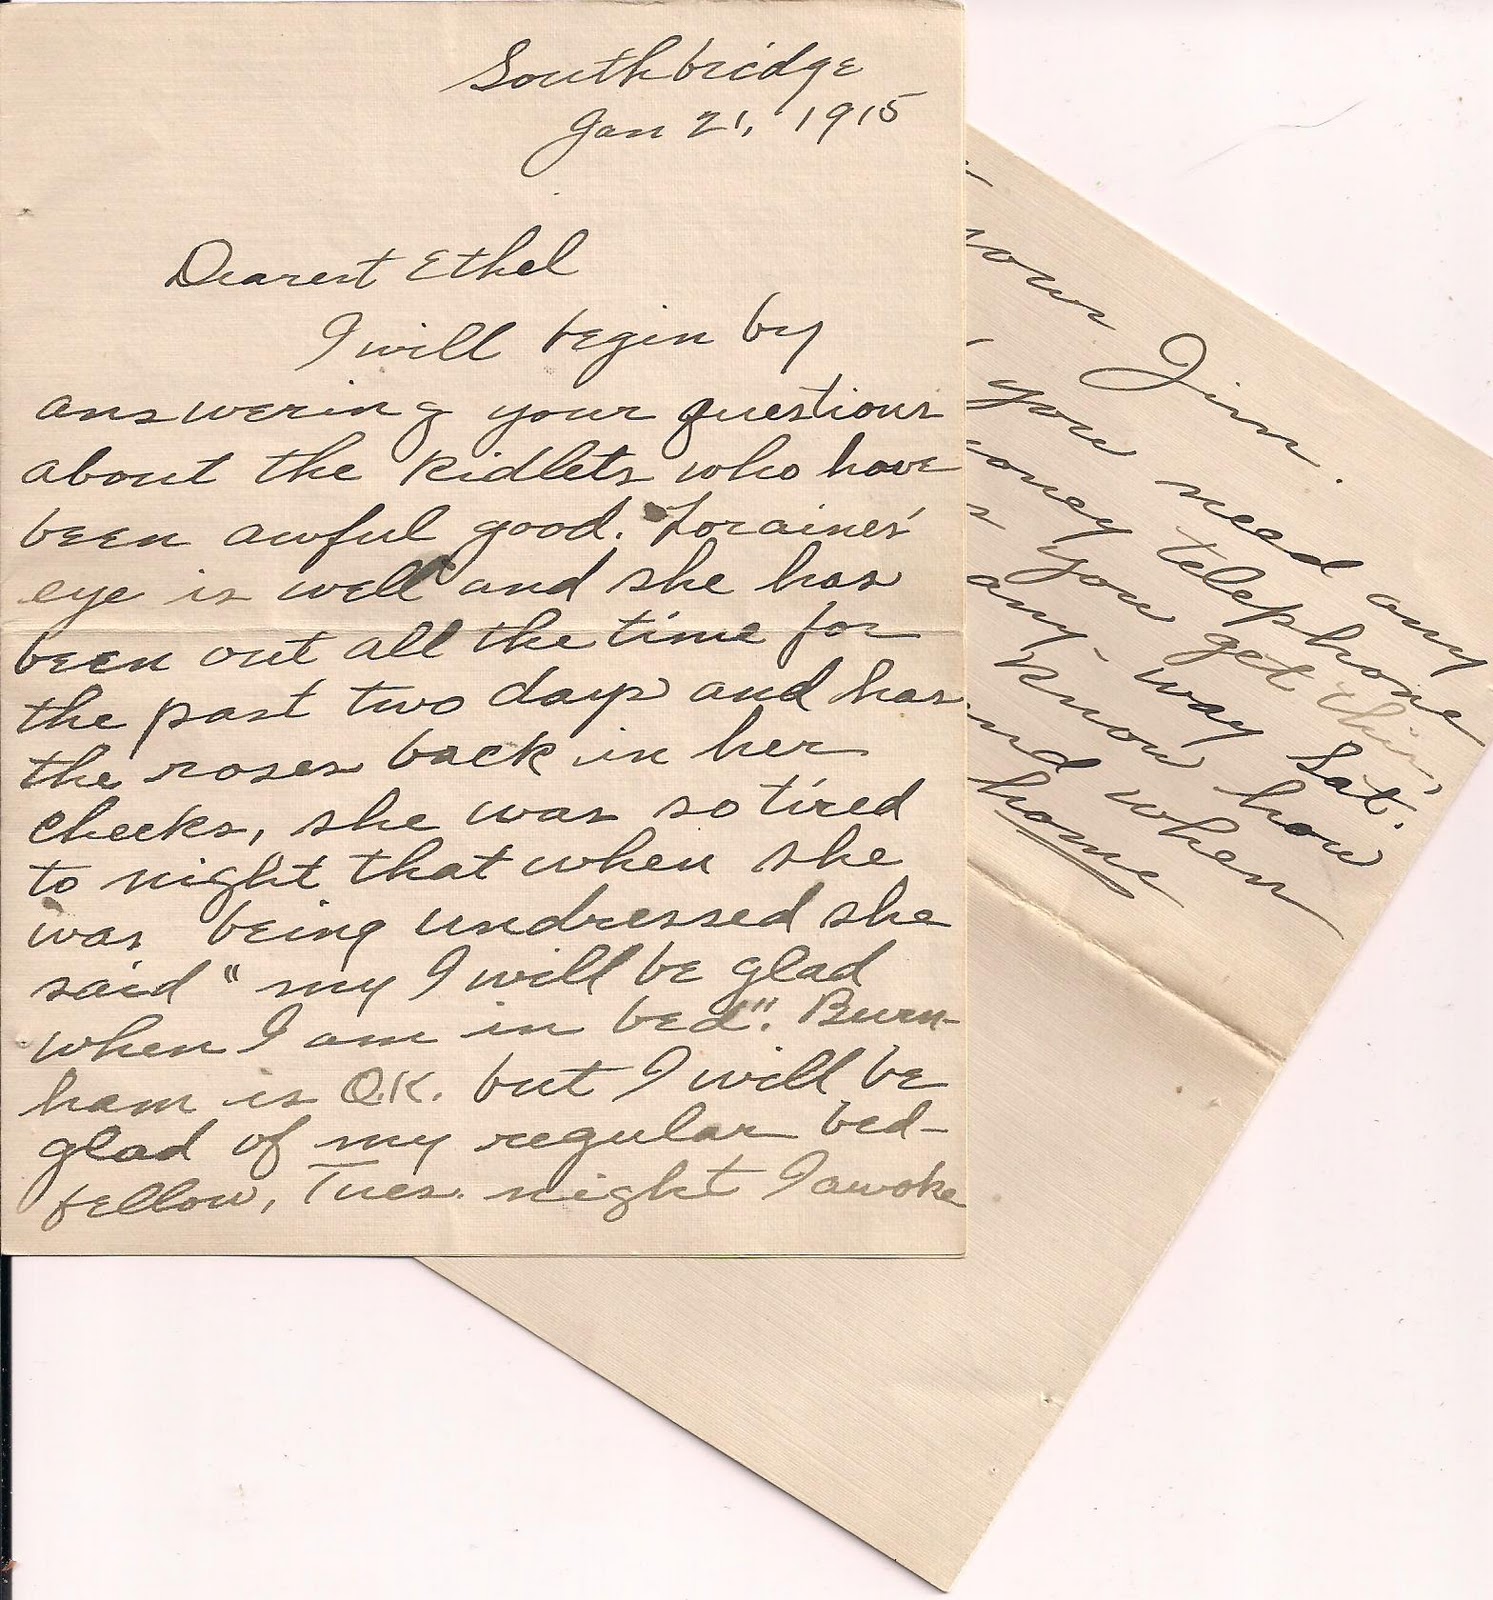 Southbridge
Jan 21, 1915
Dearest Ethel
I will begin by
answering your questions
about the kidlets who have
been awful good. Loraines'
eye is well and she has
been out all the time for
the past two days and has
the roses back in her
cheeks, she was so tired
to night that when she
was being undressed she
said "my I will be glad
when I am in bed". Burn-
ham is O.K. but I will be
glad of my regular bed-
fellow, Tues. night I awoke
your Jim.
you need any
oney telephone
s you get this,
any-way Sat.
know how
nd when
home